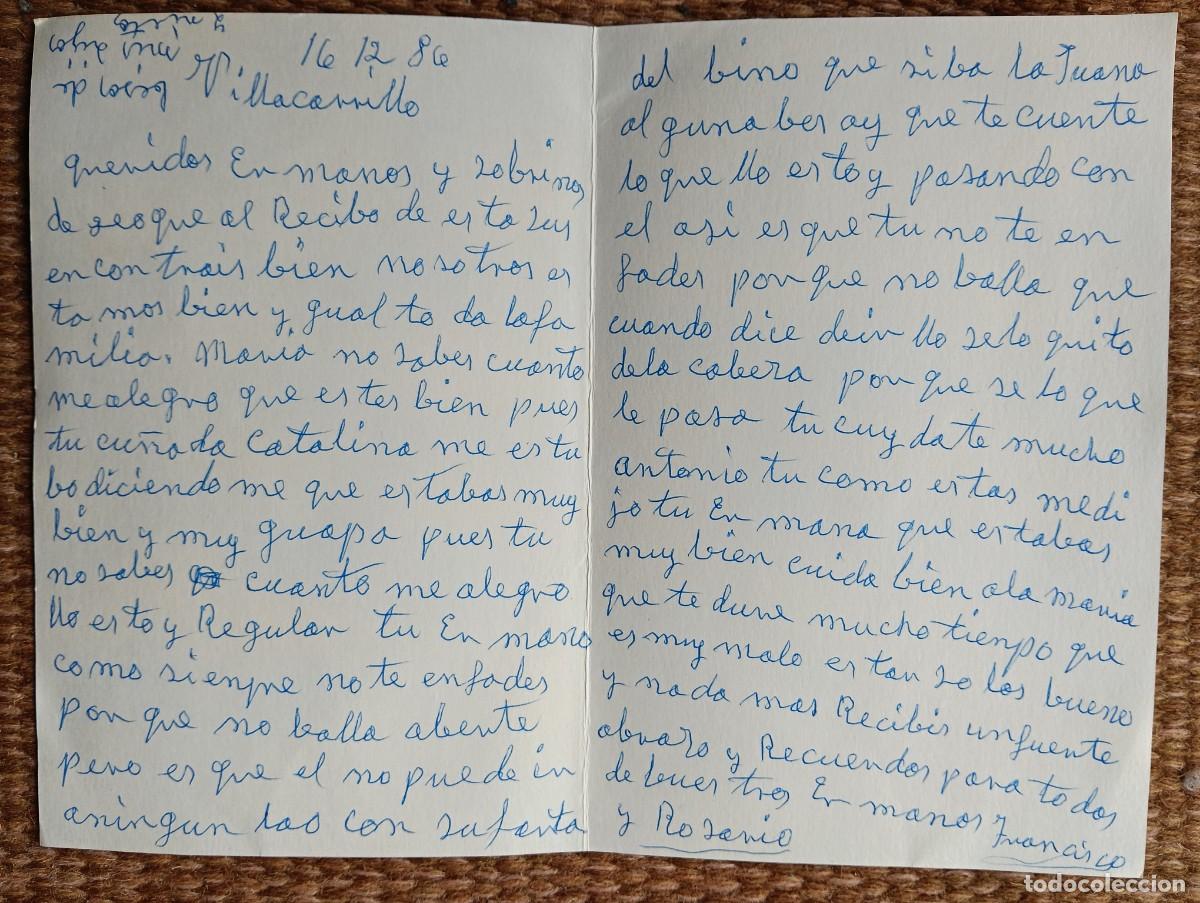 16 12 86
Villacarrillo
queridos Er manos y sobrinos
de seoque al Recibo de esta sus
en con trais bien nosotros es
ta mos bien y gual to da lafa
milia. Maria no sabes cuanto
mealegro que estes bien pues
tu cuñada Catalina me estu
bo diciendo me que estabas muy
bien y muy guapa pues tu
no sabes cuanto me alegro
llo esto y Regular tu Er mano
como sienpre no te enfades
por que no balla aberte
pero es que el no puede in
aningun lao con sufanta
del bino que siba la Juana
al guna bes ay que te cuente
lo que llo esto y pasando con
el asi es que tu no te en
fades porque no balla que
cuando dice deir llo selo quito
dela cabeza por que se lo que
le pasa tu cuy date mucho
antonio tu como estas medi
jo tu Er mana que estabas
muy bien cuida bien ala maria
que te dure mucho tienpo que
es muy malo es tan so los bueno
y nada mas Recibir unfuente
abrazo y Recuerdos para to dos
de buestros Er manos Francisco
y Rosario
y nietos
mi
todocoleccion